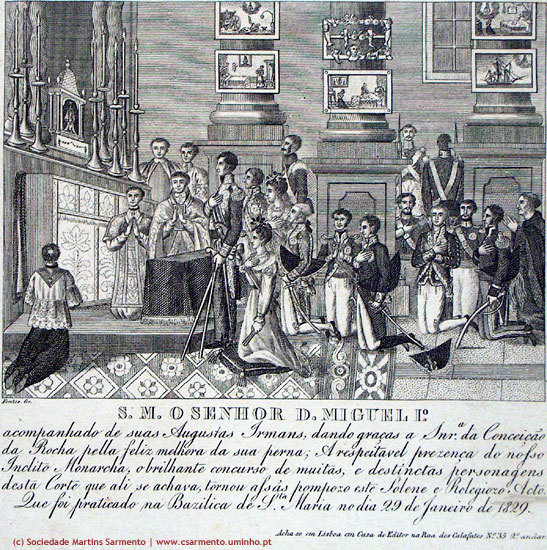 Fontes Gr.
S. M. O SENHOR D. MIGUEL Iº
acompanhado de suas Augustas Irmans, dando graças a Snr.ª da Conceição
da Rocha pella feliz melhora da sua perna; A respeitavel prezença do nosso
Inclito Monarcha, o brilhante concurso de muitas, e destinctas personagens
desta Corte que ali se achava, tornou assás pompozo este Solene e Relegiozo, Acto.
Que foi praticado na Bazilica de S.ta Maria no dia 29 de Janeiro de 1829.
Acha-se em Lisboa em Casa de Editor na Rua dos Calafates Nº 35 2º andar
(c) Sociedade Martins Sarmento | www.csarmento.uminho.pt